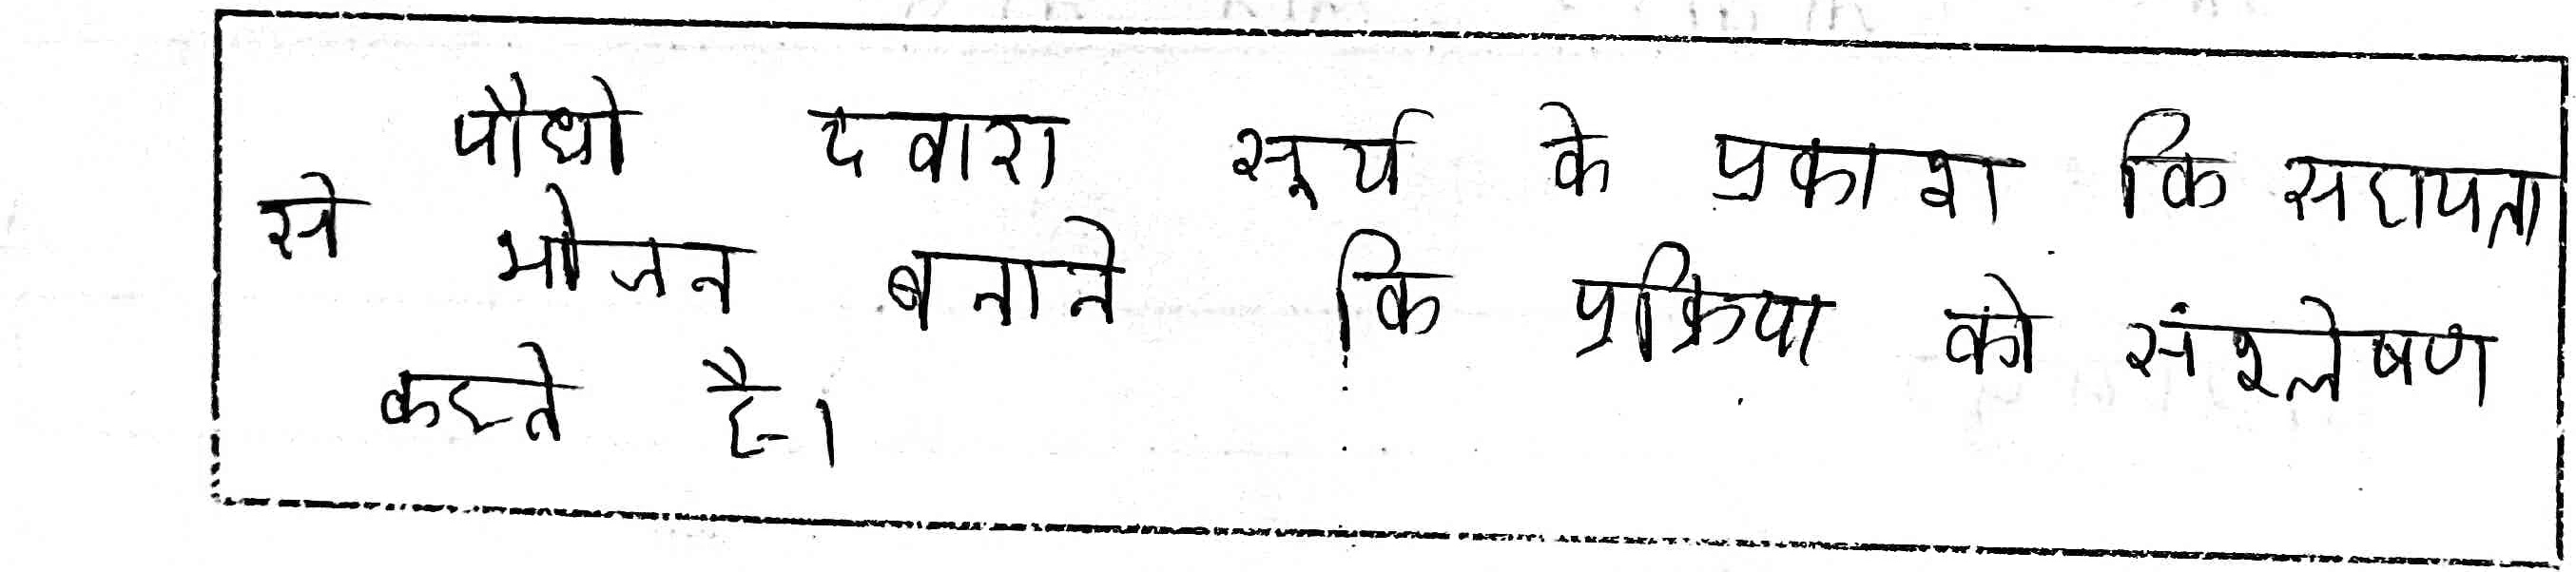 पौधो दवारा सूर्य के प्रकाश कि सहायता
से भोजन बनाने कि प्रक्रिया को संश्लेषण
करते है।